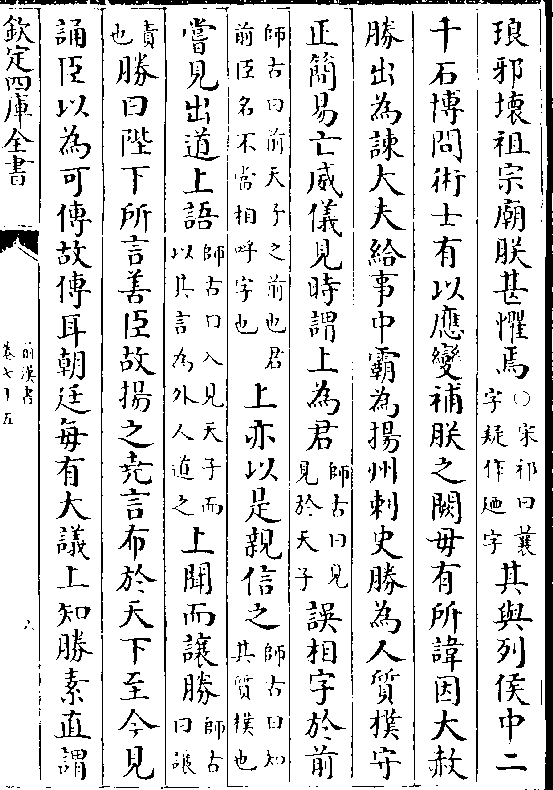 琅邪壞祖宗廟朕甚懼焉○宋祁曰曩字疑作廼字其與列侯中二
千石博問術士有以應變補朕之闕毋有所諱因大赦
勝出為諫大夫給事中霸為揚州刺史勝為人質樸守
正簡易亡威儀見時謂上為君師古曰見見於天子誤相字於前
師古曰前天子之前也君前臣名不當相呼字也上亦以是親信之師古曰知其質樸也
嘗見出道上語師古曰入見天子而以其言為外人道之上聞而讓勝師古曰讓
責也勝曰陛下所言善臣故揚之堯言布於天下至今見
誦臣以為可傳故傳耳朝廷每有大議上知勝素直謂
欽定四庫全書
前漢書
卷七十五